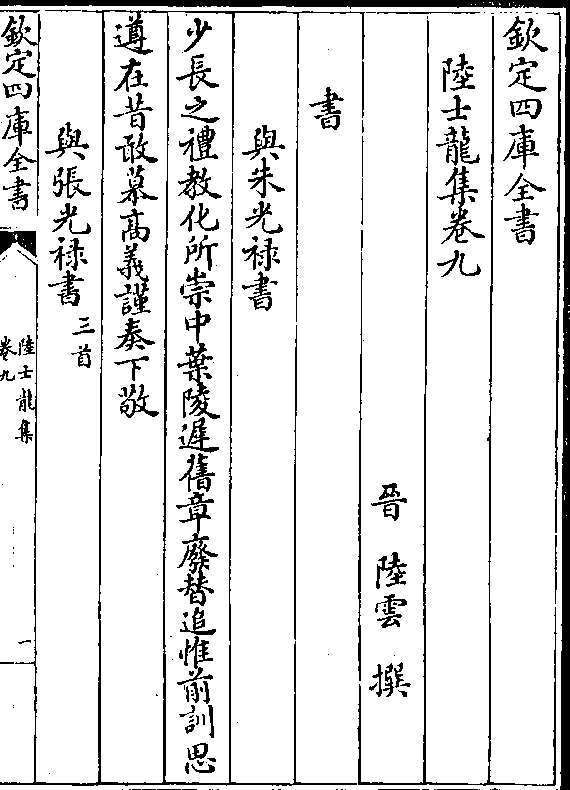 欽定四庫全書
陸士龍集卷九
晉 陸雲 撰
書
與朱光禄書
少長之禮教化所崇中葉陵遲舊章廢替追惟前訓思
遵在昔敢慕高義謹奏下敬
與張光禄書三首
欽定四庫全書
陸士龍集
卷九
一